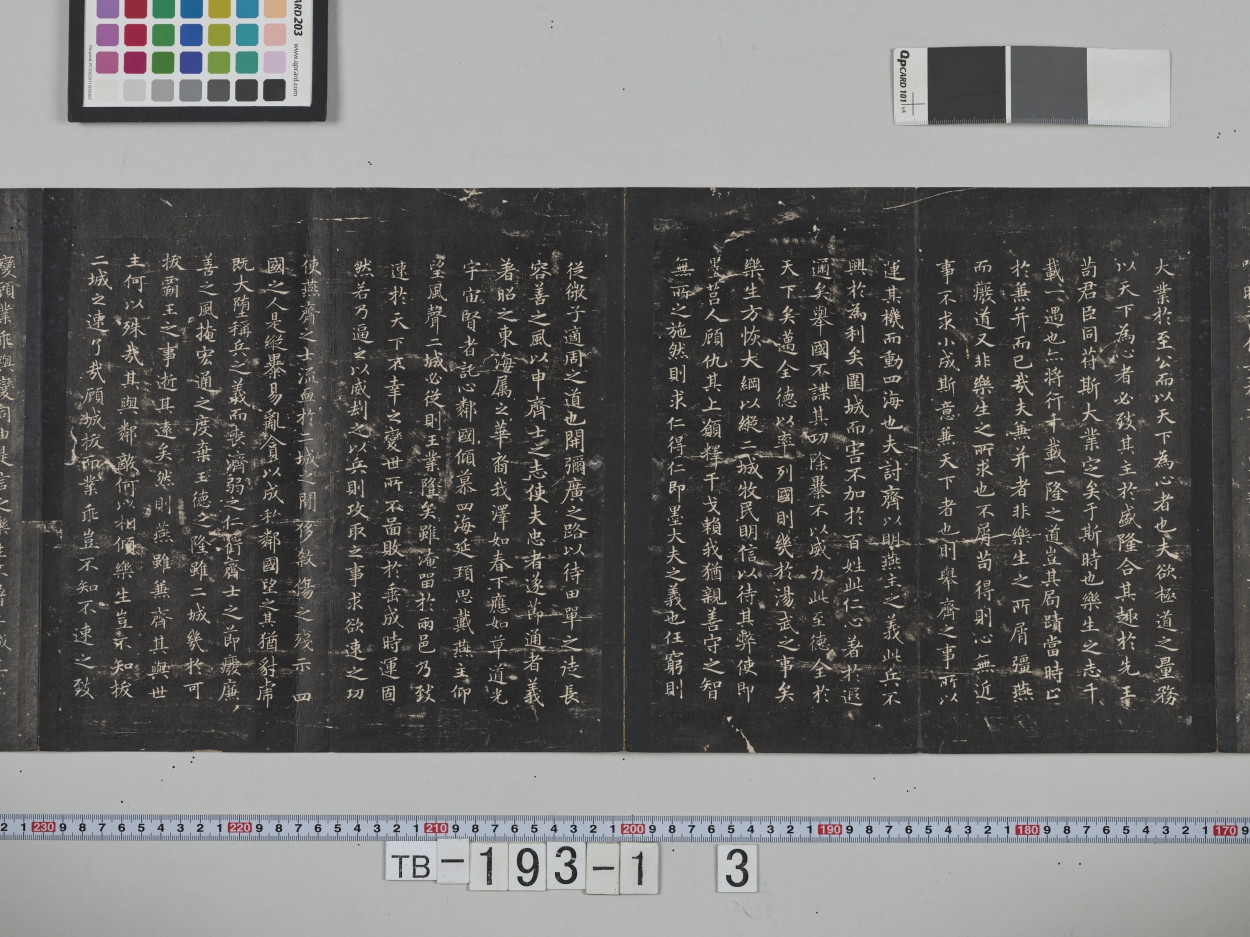 CARD 203
www.qpcard.com
QPCARD 101 v4
大業於至公而以天下為心者也夫欲極道之量務
以天下為心者必致其主於盛隆合其趣於先王
苟君臣同符斯大業定矣于斯時也樂生之志千
載一遇也亦將行千載一隆之道豈其局蹟當時止
於兼并而已哉夫兼并者非樂生之所屑彊燕
而廢道又非樂生之所求也不屑苟得則心無近
事不求小成斯意兼天下者也則舉齊之事所以
運其機而動四海也夫討齊以明燕主之義此兵不
興於為利矣圍城而害不加於百姓此仁心著於遐
邇矣舉國不謀其功除暴不以威力此至德全於
天下矣邁全德以率列國則幾於湯武之事矣
樂生方恢大綱以縱二城牧民明信以待其弊使即
墨莒人顧仇其上願釋干戈賴我猶親善守之智
無所之施然則求仁得仁即墨大夫之義也任窮則
從微子適周之道也開彌廣之路以待田單之徒長
容善之風以申齊士之志使夫忠者遂節通者義
著昭之東海屬之華裔我澤如春下應如草道光
宇宙賢者託心鄰國傾慕四海延頸思戴燕主仰
望風聲二城必從則王業隆矣雖淹留於兩邑乃致
速於天下不幸之變世所不圖敗於垂成時運固
然若乃逼之以威劫之以兵則攻取之事求欲速之功
使燕齊之士流血於二城之間侈殺傷之殘示四
國之人是縱暴易亂貪以成私鄰國望之其猶豺虎
既大墮稱兵之義而喪濟弱之仁虧齊士之節廢廉
善之風掩宏通之度棄王德之隆雖二城幾於可
拔霸王之事逝其遠矣然則燕雖兼齊其與世
主何以殊哉其與鄰敵何以相傾樂生豈不知拔
二城之速了哉顧城拔而業乖豈不知不速之致
TB-193-1 3